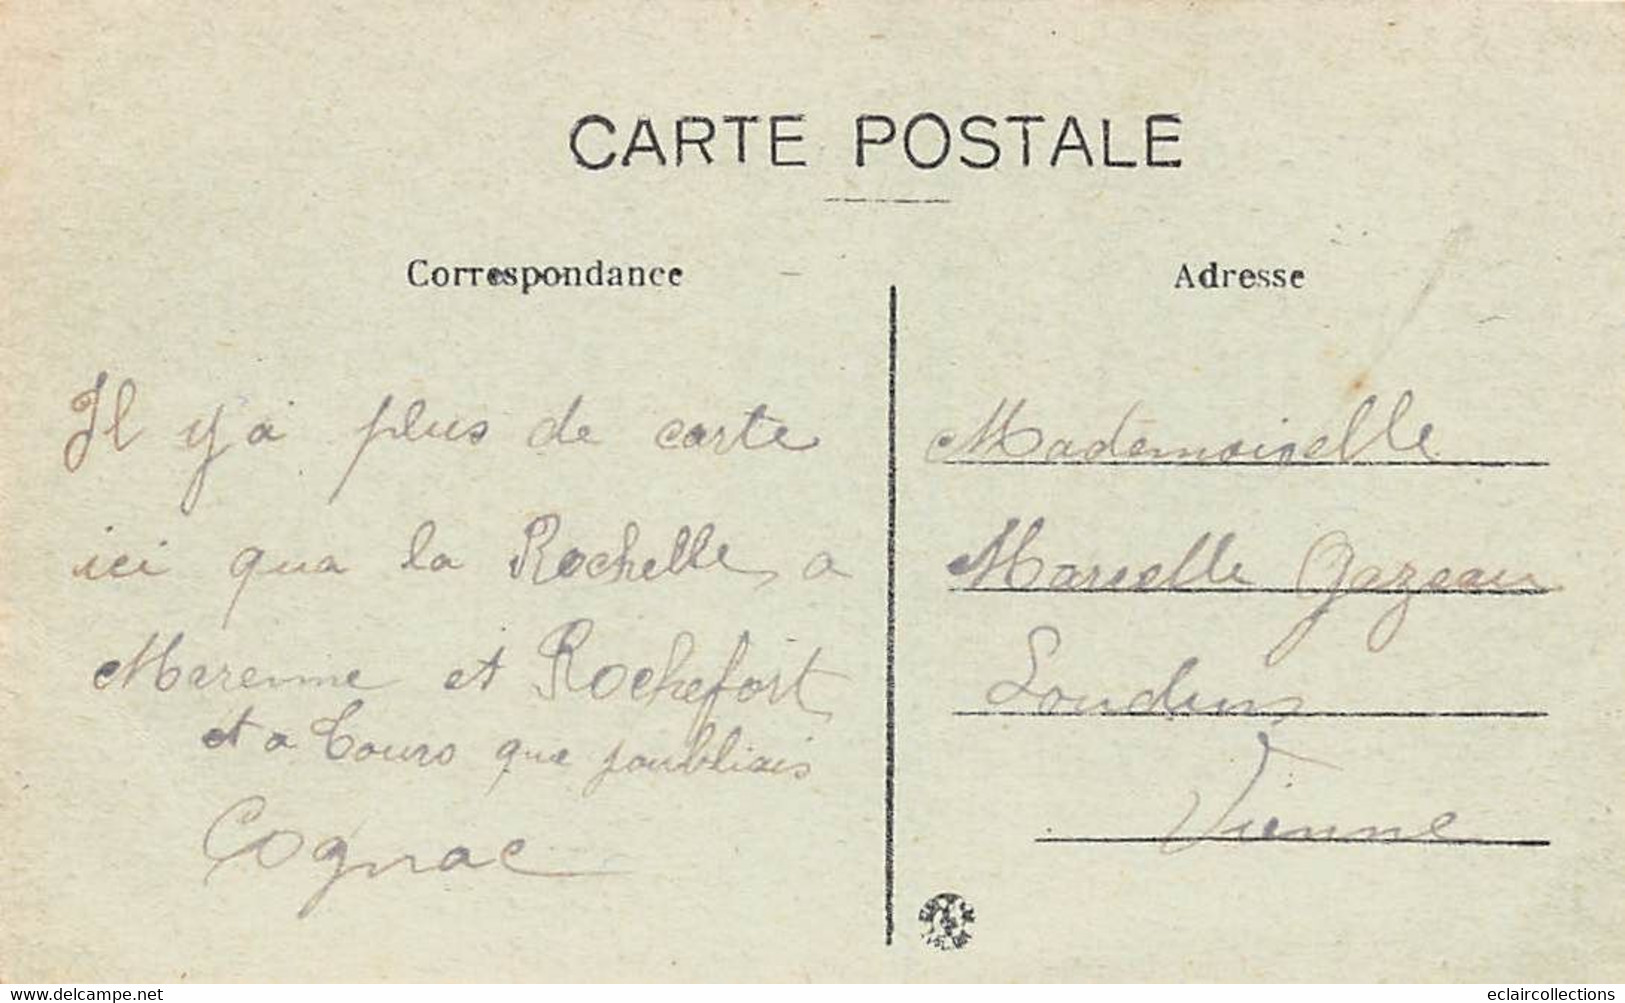 CARTE POSTALE
Correspondance
Il y'a plus de carte
ici qua la Rochelle, a
Marenne et Rochefort
et a Tours que joubliais
Cognac
Adresse
Mademoiselle
Marcelle Gazeau
Loudun
Vienne
www.delcampe.net
eclaircollections